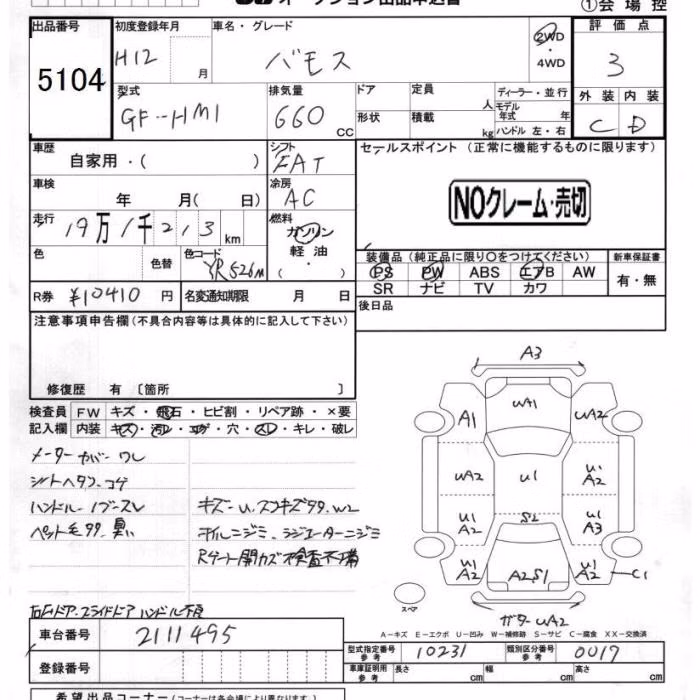 オークション出品申込書
①会場控
出品番号 初度登録年月 車名・グレード 評価点
5104 H12 月 バモス 2WD・4WD 3
型式 排気量 ドア 定員 ディーラー・並行 外装 内装
GF-HM1 660 CC 形状 積載 人 モデル年式 年 C D
kg ハンドル 左・右
車歴 シフト セールスポイント(正常に機能するものに限ります)
自家用・( ) FAT
車検 冷房 NOクレーム・売切
年 月( 日) AC
走行 燃料
19万1千213km ガソリン
軽油
・( )
色 色替 色コード 装備品(純正品に限り○をつけてください) 新車保証書
YR526M PS PW ABS エアB AW 有・無
SR ナビ TV カワ
R券 ¥10410円 名変通知期限 月 日 後日品
注意事項申告欄(不具合内容等は具体的に記入して下さい)
修復歴 有〔箇所 〕
検査員 FW キズ・飛石・ヒビ割・リペア跡・×要
記入欄 内装 キズ・汚レ・コゲ・穴・スレ・キレ・破レ
メーターカバーワレ
シートヘタリ、コゲ
ハンドル・1ブースレ キズー U.スリキズ99.W2
ペット毛99.臭い オイルニジミ、ラジエーターニジミ
Rゲート開カズ検査不備
右Fドア、スライドドアハンドル不良
A3
WA1
A1 WA2
WA2 U1 U1 A2
U1 A2 S2 U1 A3
U1 A2 A2S1 U1 A2 C1
スペア
ガターWA2
A-キズ E-エクボ U-凹み W-補修跡 S-サビ C-腐食 XX-交換済
車台番号 2111495
型式指定番号 参考 10231 類別区分番号 参考 0017
登録番号
車庫証明用 参考 長さ cm 幅 cm 高さ cm
希望出品コーナー